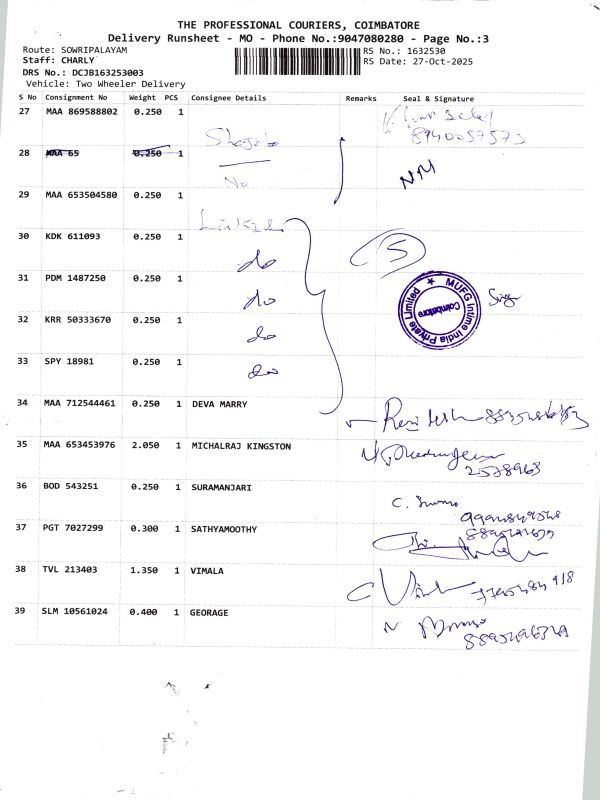 THE PROFESSIONAL COURIERS, COIMBATORE
Delivery Runsheet - MO - Phone No.:9047080280 - Page No.:3
Route: SOWRIPALAYAM
RS No.: 1632530
Staff: CHARLY
RS Date: 27-Oct-2025
DRS No.: DCJB163253003
Vehicle: Two Wheeler Delivery
S No Consignment No Weight PCS Consignee Details Remarks Seal & Signature
27 MAA 869588802 0.250 1
8940057573
28 MAA 65 0.250 1
NM
29 MAA 653504580 0.250 1
30 KDK 611093 0.250 1 do
5
31 PDM 1487250 0.250 1 do
MUFG Intime India Private Limited
Coimbatore
32 KRR 50333670 0.250 1 do
33 SPY 18981 0.250 1 do
34 MAA 712544461 0.250 1 DEVA MARRY
35 MAA 653453976 2.050 1 MICHALRAJ KINGSTON
36 BOD 543251 0.250 1 SURAMANJARI
37 PGT 7027299 0.300 1 SATHYAMOOTHY
38 TVL 213403 1.350 1 VIMALA
39 SLM 10561024 0.400 1 GEORAGE